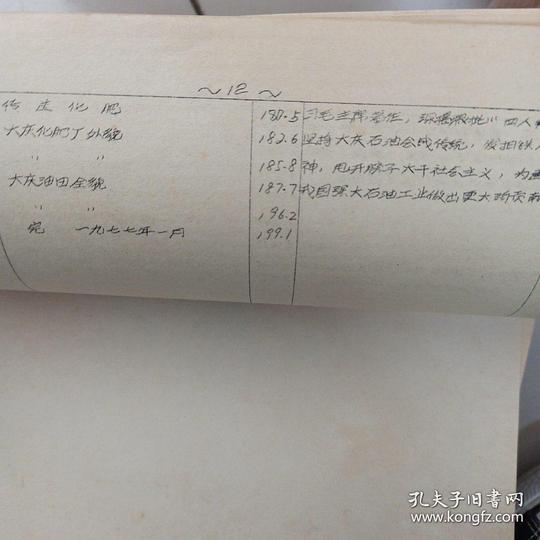 ～12～
传 送 化 肥 187.5 习毛主席著作，狠揭狠批"四人
大庆化肥厂外貌 182.6 坚持大庆石油会战传统，发扬铁人
〃 〃 185.8 神，甩开膀子大干社会主义，为
大庆油田全貌 187.7 我国强大石油工业做出更大的贡献
〃 〃 196.2
完 一九七七年一月 199.1
孔夫子旧书网
www.kongfz.com